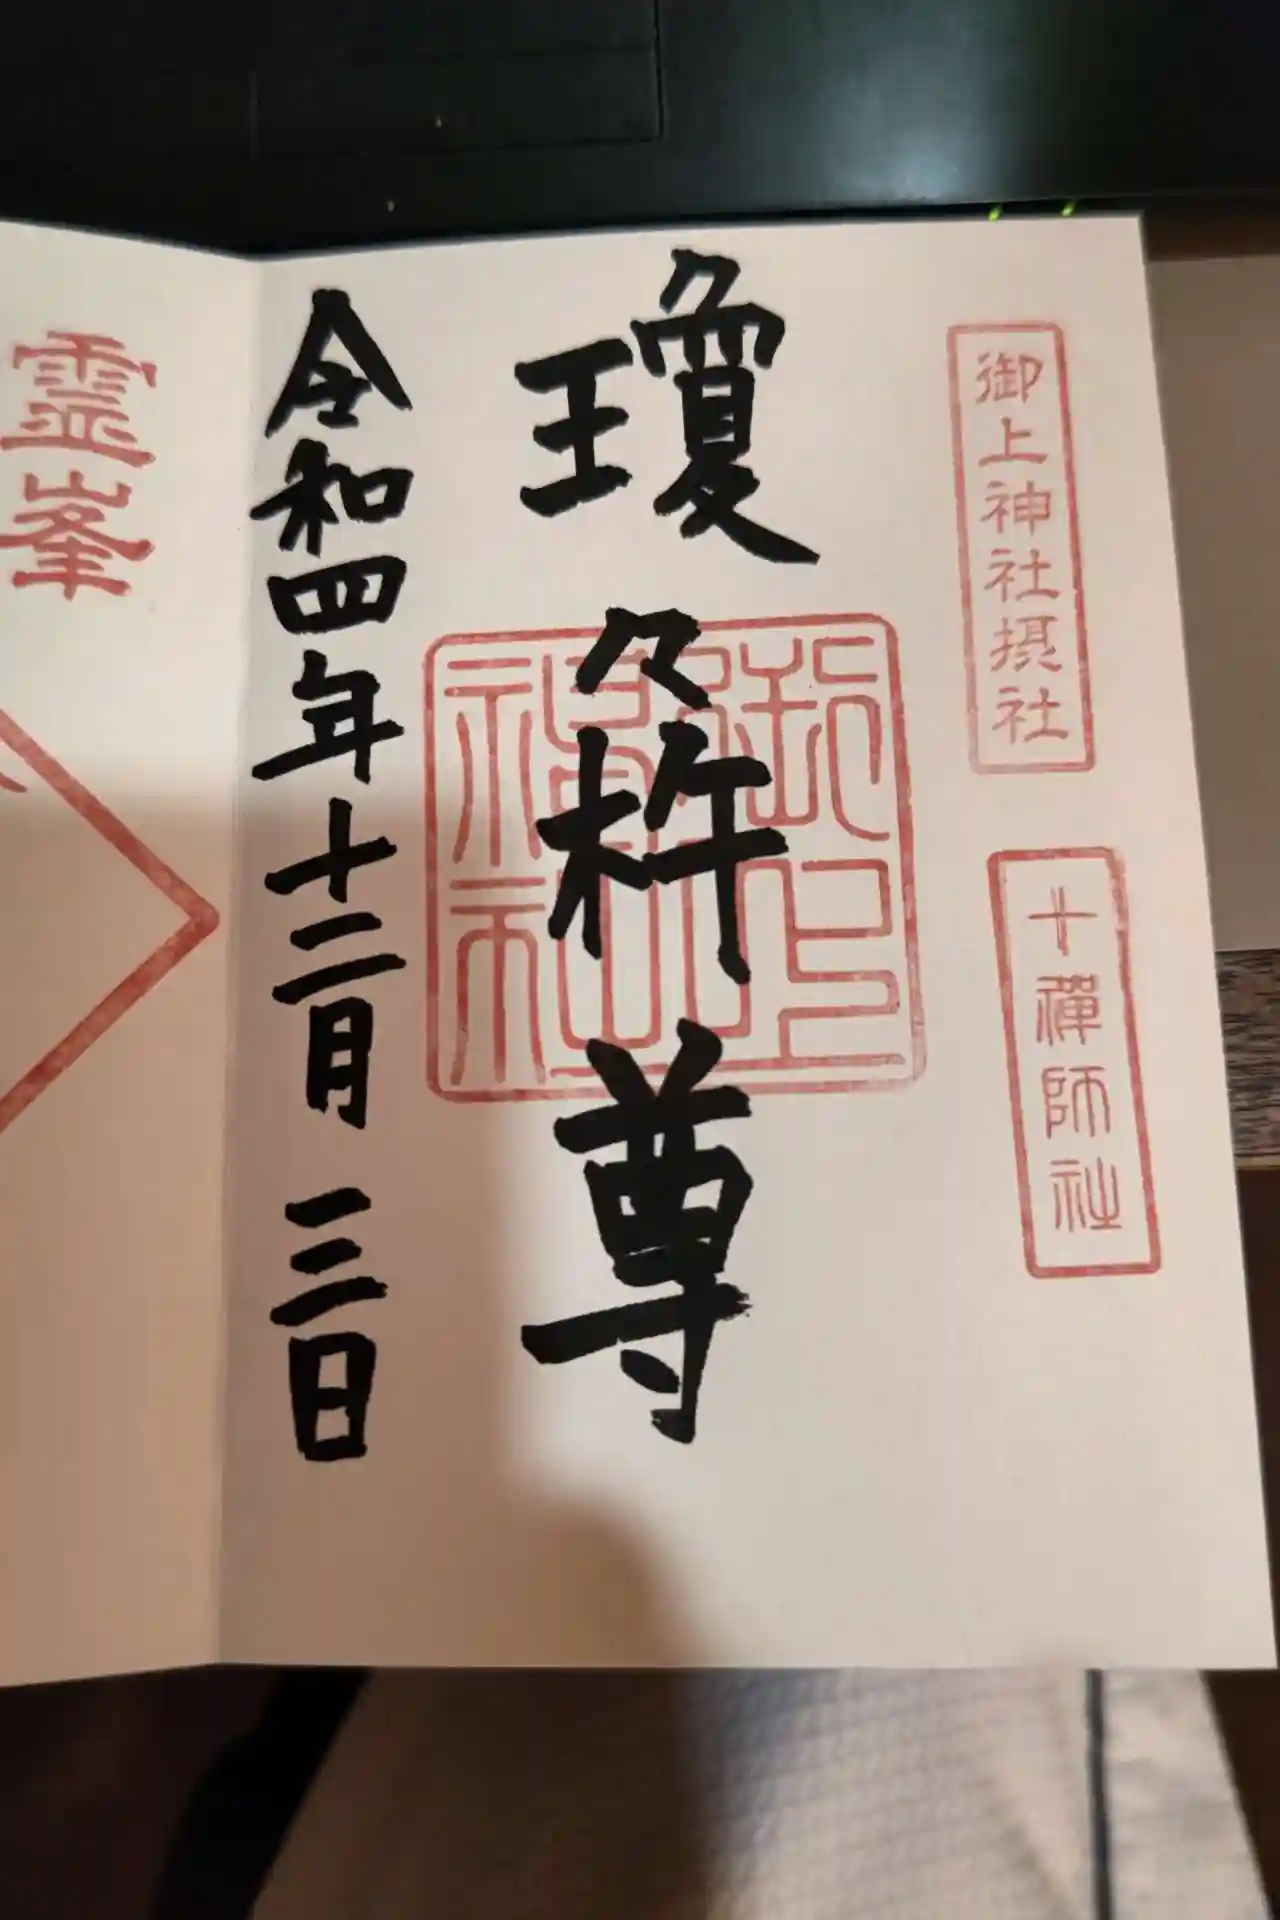 御上神社摂社
十禅師社
瓊々杵尊
令和四年十二月三日
霊峯